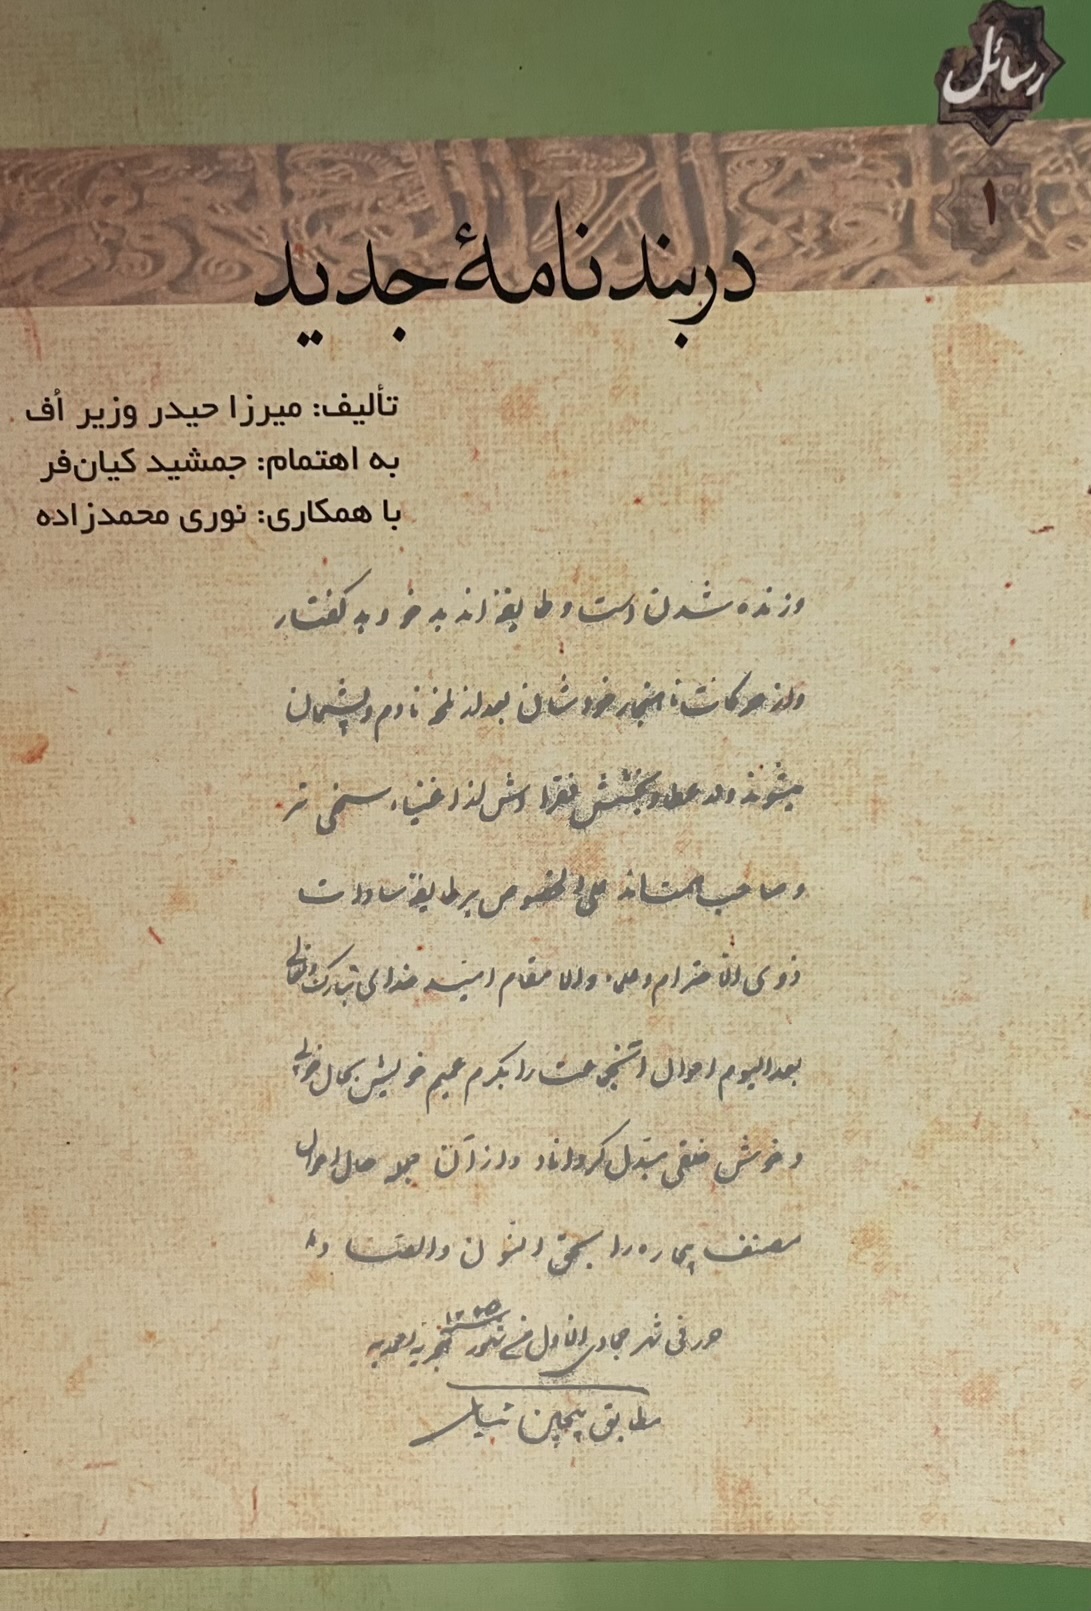 رسائل
۱
دربندنامهٔ جدید
تألیف: میرزا حیدر وزیر اُف
به اهتمام: جمشید کیان‌فر
با همکاری: نوری محمدزاده
وزنده شدن است و طایفه‌اند بد خو و بد گفتار
واز حرکات ناهنجار خودشان بعد از نادم و پشیمان
میشوند ودر عطا و بخشش فقرااش از اغنیاء سخی تر
و صاحب همت‌اند علی الخصوص بر طایفه سادات
ذوی الاحترام و علماء والا مقام امید خدای تبارک وتعالی
بعد الیوم احوال را بکرم عمیم خویش بحال
و خوش خلقی مبدل کرداناد واز آن جمله حال احوال
مصنف بیچاره را بحق النون والصاد
حرر فی شهر جمادی الاول سنه ۱۲۴۵
مطابق